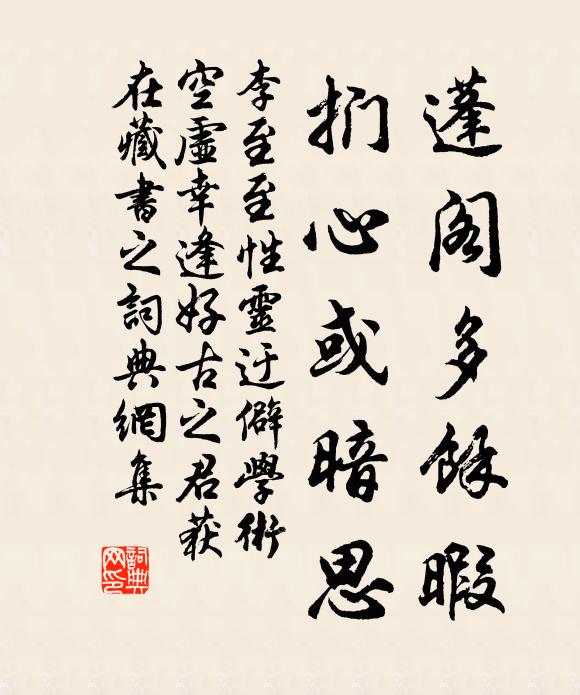 蓬阁多馀暇
扪心或暗思
李至至性靈迂僻學術
空虚幸逢好古之君获
在藏書之詞典網集
詞典网印